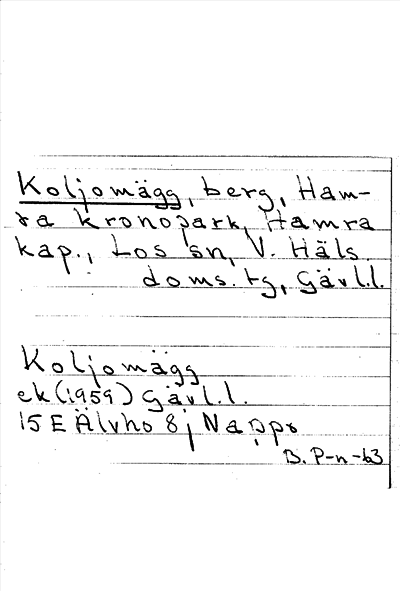 Koljomägg, berg, Ham-
ra kronopark, Hamra
kap., Los sn, V. Häls.
doms. tg, Gävl.l.
Koljomägg
ek (1959) Gävl.l.
15 E Älvho 8 j Nappr
B. P-n -63